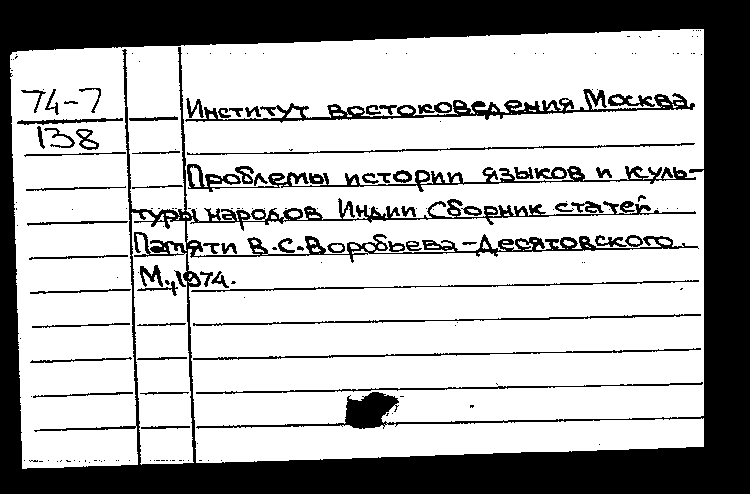 74-7
138
Институт востоковедения. Москва.
Проблемы истории языков и куль-
туры народов Индии. Сборник статей.
Памяти В.С.Воробьева-Десятовского.
М.,1974.